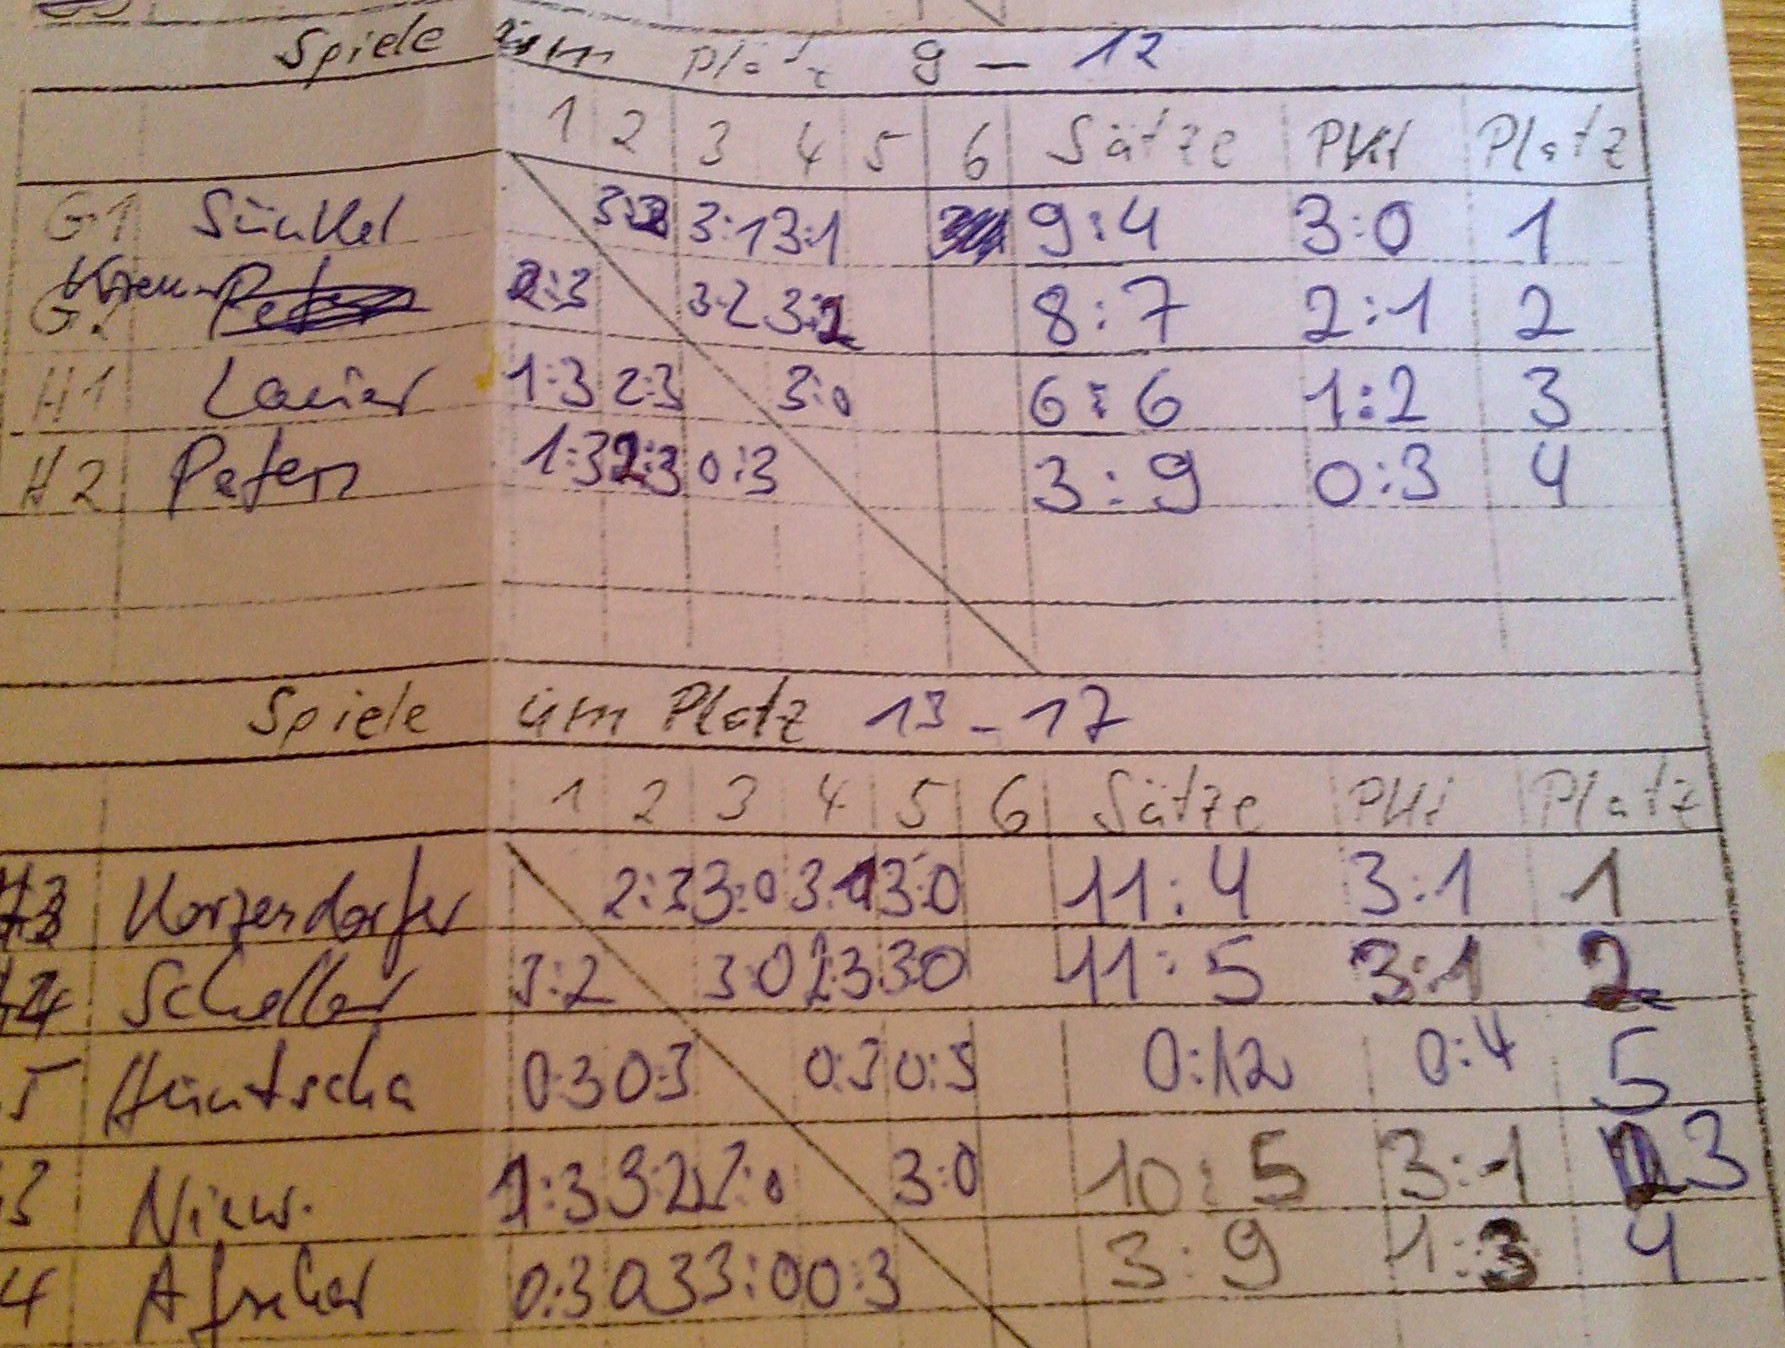 Spiele um Platz 9 - 12
1 2 3 4 5 6 Sätze Pkt Platz
G1 Sünkel 3:2 3:1 3:1 9:4 3:0 1
G2 2:3 3:2 3:2 8:7 2:1 2
H1 1:3 2:3 3:0 6:6 1:2 3
H2 Peters 1:3 2:3 0:3 3:9 0:3 4
Spiele um Platz 13 - 17
1 2 3 4 5 6 Sätze Pkt Platz
Korzendorfer 2:3 3:0 3:1 3:0 11:4 3:1 1
Scheller 3:2 3:0 2:3 3:0 11:5 3:1 2
5 0:3 0:3 0:3 0:3 0:12 0:4 5
3 Niew. 1:3 3:2 3:0 10:5 3:1 3
4 0:3 0:3 3:0 0:3 3:9 1:3 4